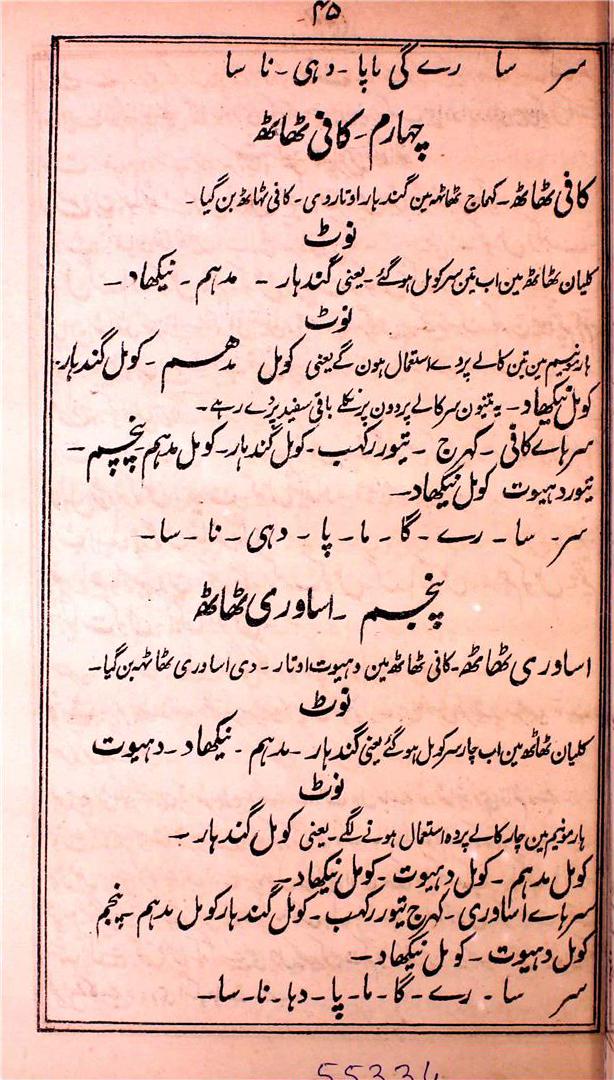 ۴۵
سر سا رے گی ما پا - دہی - نا سا
چہارم - کافی ٹھاٹھ
کافی ٹھاٹھ - کہماج ٹھاٹھ مین گندہار اوتار دی - کافی ٹھاٹھ بن گیا -
نوٹ
کلیان ٹھاٹھ مین اب تین سر کومل ہو گئے - یعنی گندہار - مدہم - نیکھاد -
نوٹ
ہارمونیم مین تین کالے پردے استعمال ہون گے یعنی کومل مدھم - کومل گندہار -
کومل نیکھاد - یہ تینون سر کالے پردون پر نکلے باقی سفید پردے رہے -
سر ہاے کافی - کہرج - تیور رکہب - کومل گندہار - کومل مدہم پنچم -
تیور دہیوت کومل نیکھاد -
سر - سا - رے - گا - ما - پا - دہی - نا - سا -
پنجم - اساوری ٹھاٹھ
اساوری ٹھاٹھ - کافی ٹھاٹھ مین دہیوت اوتار - دی اساوری ٹھاٹھ بن گیا -
نوٹ
کلیان ٹھاٹھ مین اب چار سر کومل ہو گئے یعنی گندہار - مدہم - نیکھاد - دہیوت
نوٹ
ہارمونیم مین چار کالے پردہ استعمال ہونے لگے - یعنی کومل گندہار -
کومل مدہم - کومل دہیوت - کومل نیکھاد -
سر ہاے اساوری - کہرج تیور رکہب - کومل گندہار کومل مدہم - پنچم
کومل دہیوت - کومل نیکھاد -
سر سا - رے - گا - ما - پا - دہا - نا - سا -
55334